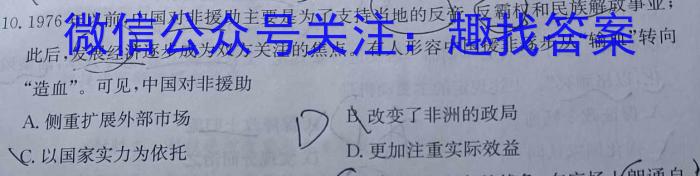 10. 1976年以前,中国对非援助主要是为了支持当地的反帝、反霸权和民族解放事业;
微信公众号关注:趣找答案
此后,发展经济逐步成为双方关注的焦点。有人形容中国援非逐步从“输血”转向
“造血”。可见,中国对非援助
A. 侧重扩展外部市场
B. 改变了非洲的政局
D
C. 以国家实力为依托
D. 更加注重实际效益